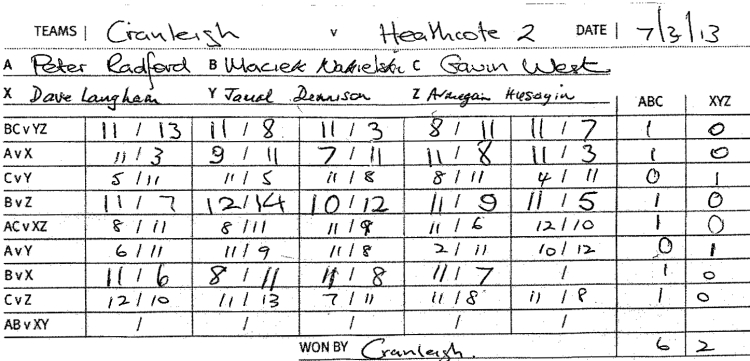 TEAMS | Cranleigh v Heathcote 2 DATE | 7/3/13
A Peter Radford B Maciek C Gavin West
X Dave Langham Y Jamal Dennison Z Husayin ABC XYZ
BC v YZ 11 / 13 11 / 8 11 / 3 8 / 11 11 / 7 1 0
A v X 11 / 3 9 / 11 7 / 11 11 / 8 11 / 3 1 0
C v Y 5 / 11 11 / 5 11 / 8 8 / 11 4 / 11 0 1
B v Z 11 / 7 12 / 14 10 / 12 11 / 9 11 / 5 1 0
AC v XZ 8 / 11 8 / 11 11 / 9 11 / 6 12 / 10 1 0
A v Y 6 / 11 11 / 9 11 / 8 2 / 11 10 / 12 0 1
B v X 11 / 6 8 / 11 11 / 8 11 / 7 / 1 0
C v Z 12 / 10 11 / 13 7 / 11 11 / 8 11 / 8 1 0
AB v XY / / / / /
WON BY Cranleigh. 6 2